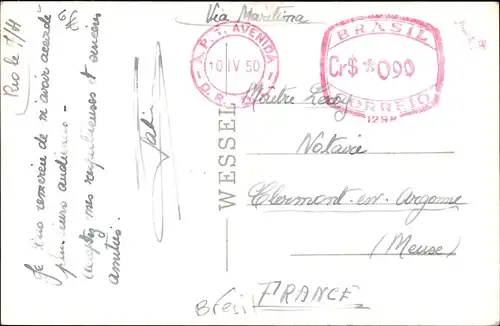 Via Maritima
A.P.T. AVENIDA
10 IV 50
D.R.
BRASIL
Cr$ *090
CORREIO
Rio le
Je vous remercie de m'avoir accordé
plusieurs audiences —
acceptez mes respectueuses et sincères
amitiés.
WESSEL
Maître Leroy
Notaire
Clermont-en-Argonne
(Meuse)
FRANCE
Brésil